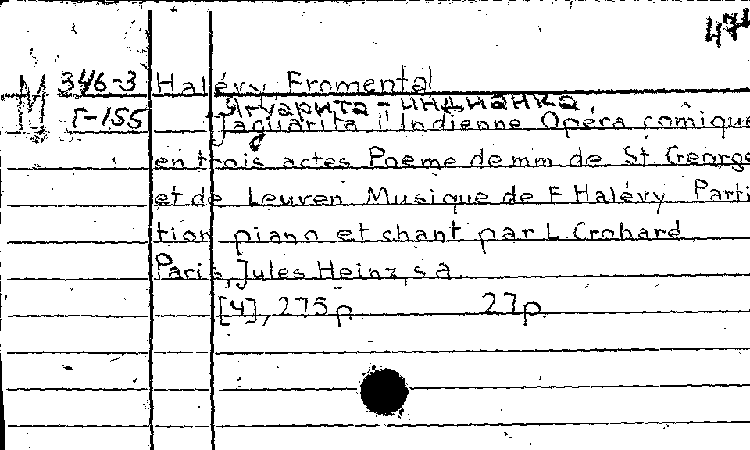 47
М 346-3 Halévy Fromental
Г-155 Ягуарита - индианка.
Jaguarita l'Indienne Opéra comique
en trois actes Poeme de mm de St George
et de Leuven Musique de F Halévy Parti
tion piano et chant par L Crohard
Paris, Jules Heinz, s.a.
[4], 275 p 27p.